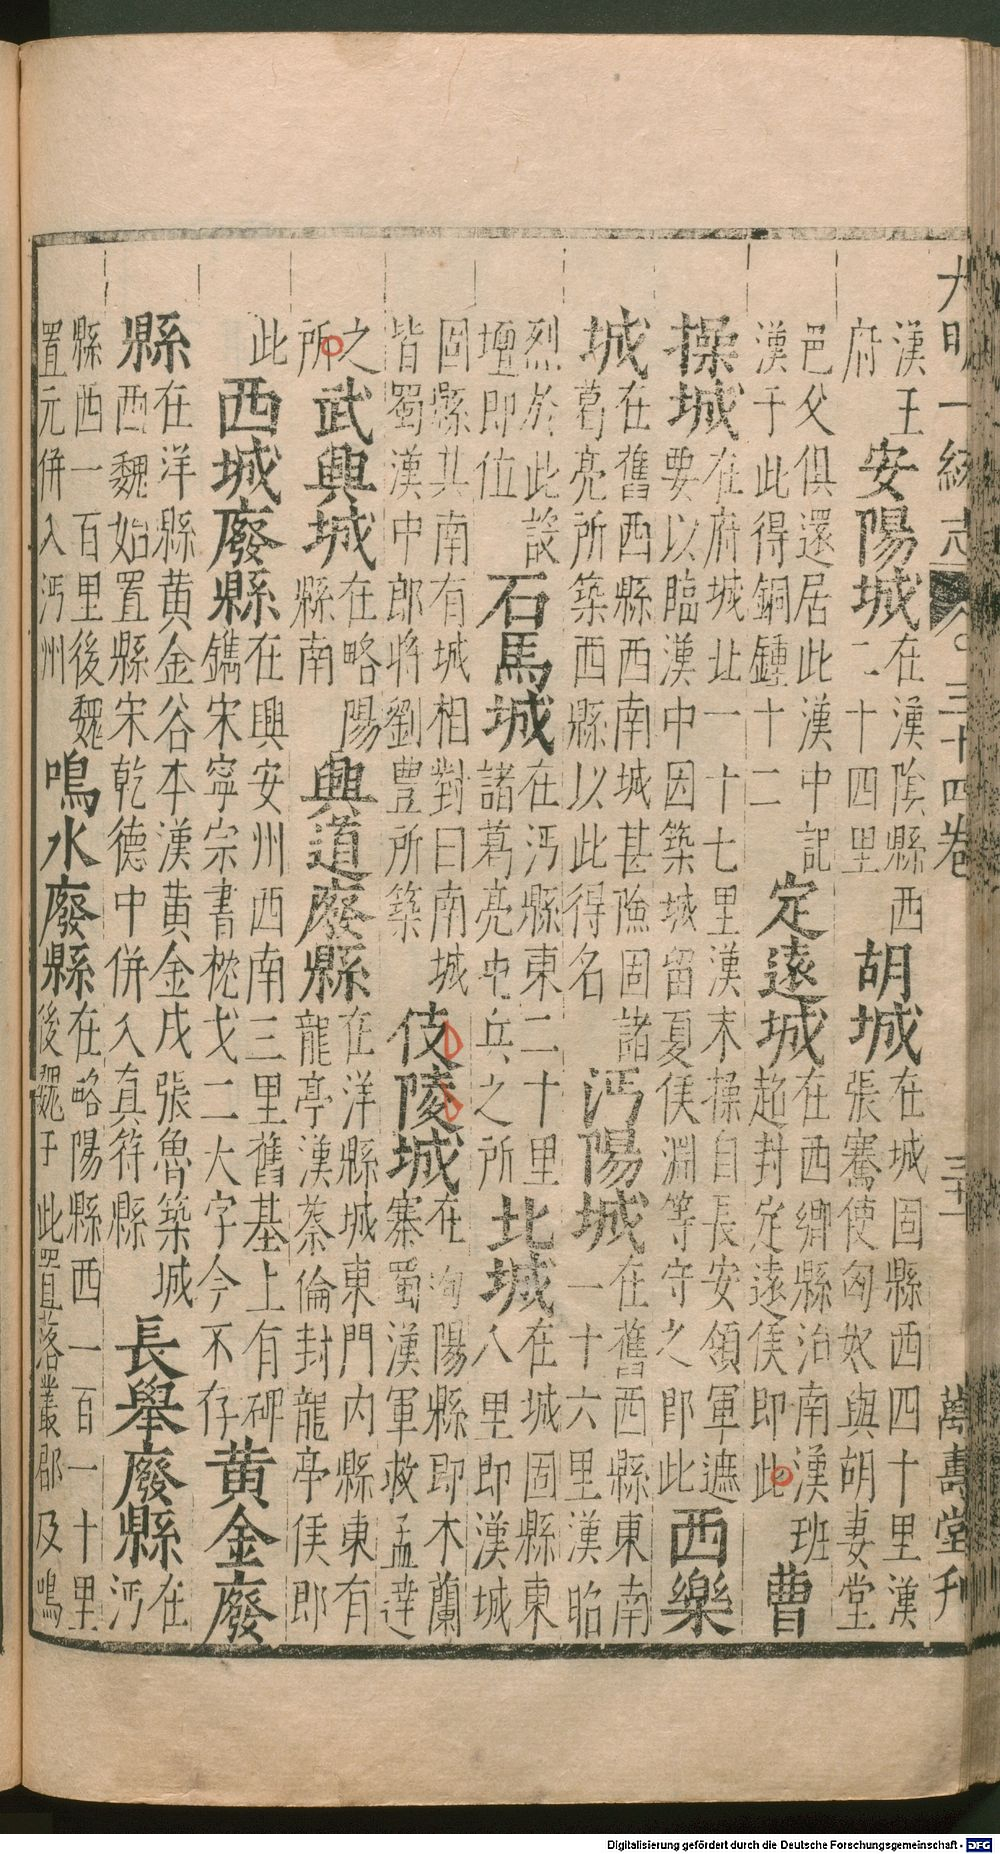 大明一統志 三十四卷 三十一 萬壽堂刊
漢王府 安陽城 在漢陰縣西二十四里 胡城 在城固縣西四十里漢張騫使匈奴與胡妻堂
邑父俱還居此漢中記漢于此得銅鍾十二 定遠城 在西鄉縣治南漢班超封定遠侯即此 曹
操城 在府城北一十七里漢末操自長安領軍遮要以臨漢中因築城留夏侯淵等守之即此 西樂
城 在舊西縣西南城甚險固諸葛亮所築西縣以此得名 沔陽城 在舊西縣東南一十六里漢昭
烈於此設壇即位 石馬城 在沔縣東二十里諸葛亮屯兵之所 北城 在城固縣東八里即漢城
固縣其南有城相對曰南城皆蜀漢中郎將劉豊所築 伎陵城 在洵陽縣即木蘭寨蜀漢軍救孟達
之所 武興城 在略陽縣南 興道廢縣 在洋縣城東門内縣東有龍亭漢蔡倫封龍亭侯即
此 西城廢縣 在興安州西南三里舊基上有碑鐫宋寧宗書枕戈二大字今不存 黄金廢
縣 在洋縣黄金谷本漢黄金戍張魯築城西魏始置縣宋乾德中併入真符縣 長舉廢縣 在沔
縣西一百里後魏置元併入沔州 鳴水廢縣 在略陽縣西一百一十里後魏于此置落叢郡及鳴
Digitalisierung gefördert durch die Deutsche Forschungsgemeinschaft - DFG